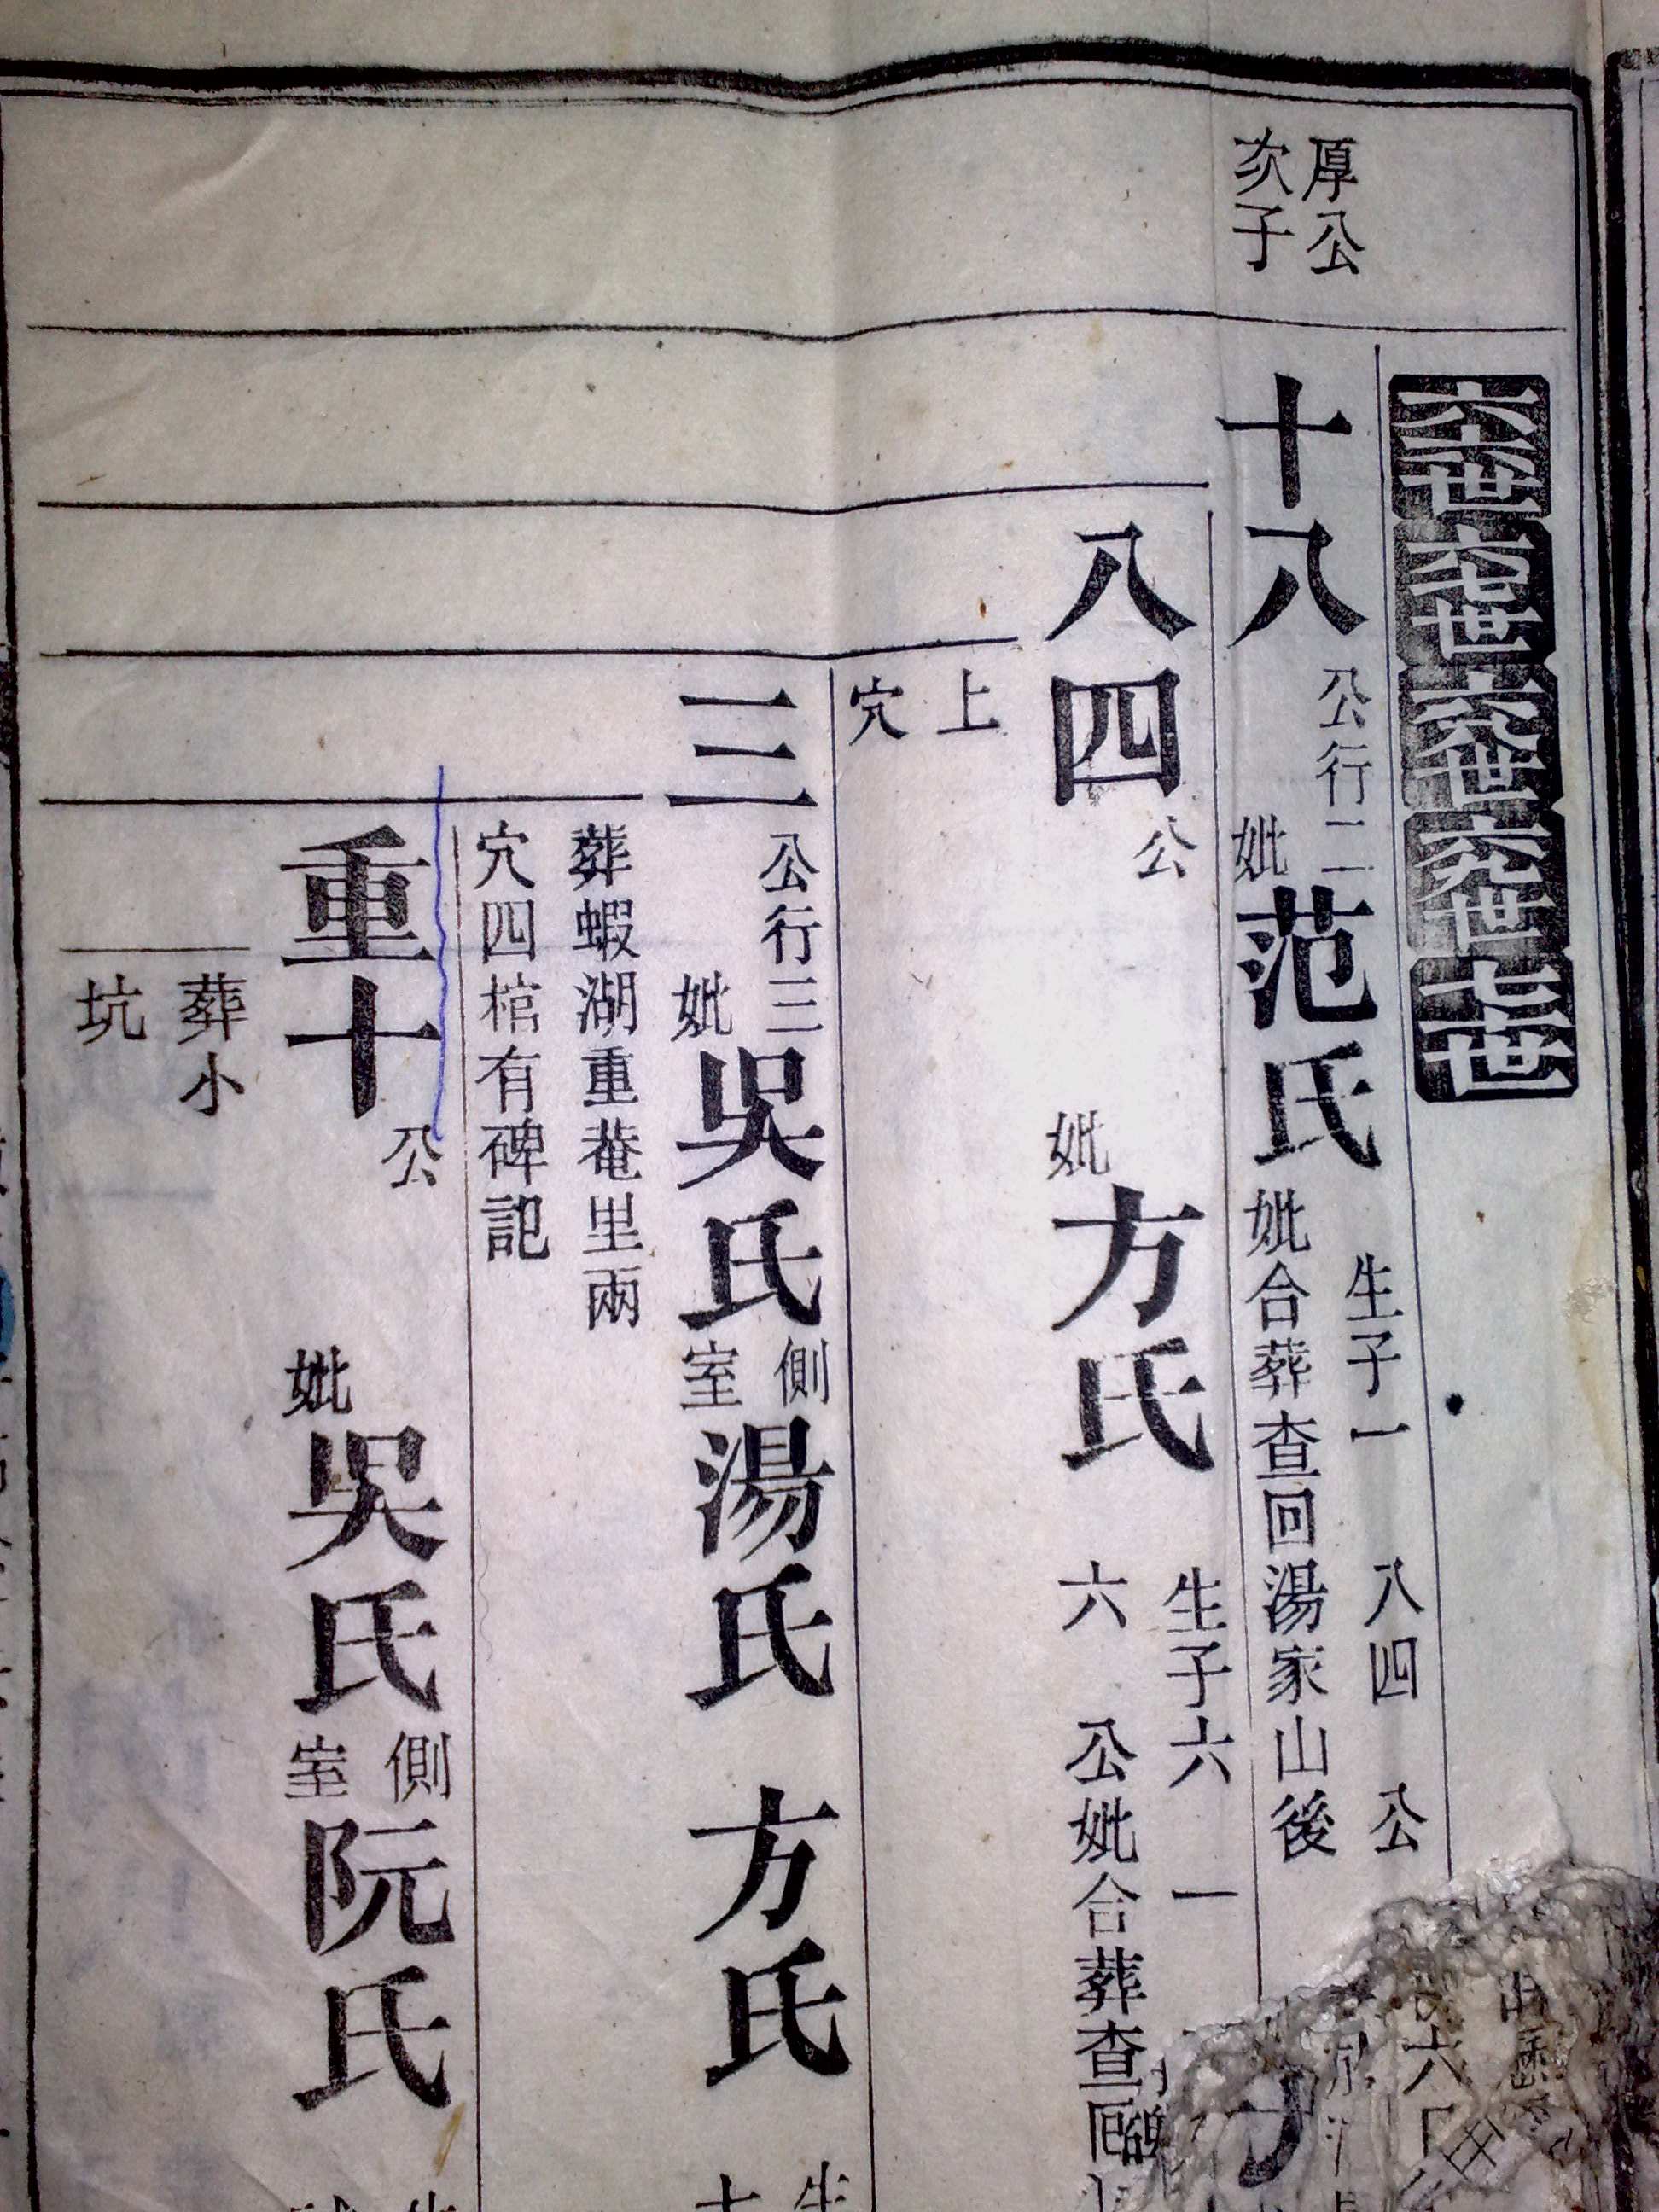 六六世六七世六八世六九世七十世
厚公
次子
十八
公行二
妣
范氏
生子一 八四公
妣合葬查回湯家山後
八四
公
妣
方氏
生子六 一
六 公妣合葬查
上
穴
三
公行三
妣
吳氏
側
室
湯氏 方氏
生
葬蝦湖重菴里兩
穴四棺有碑記
重十
公
妣
吳氏
側
室
阮氏
葬小
坑